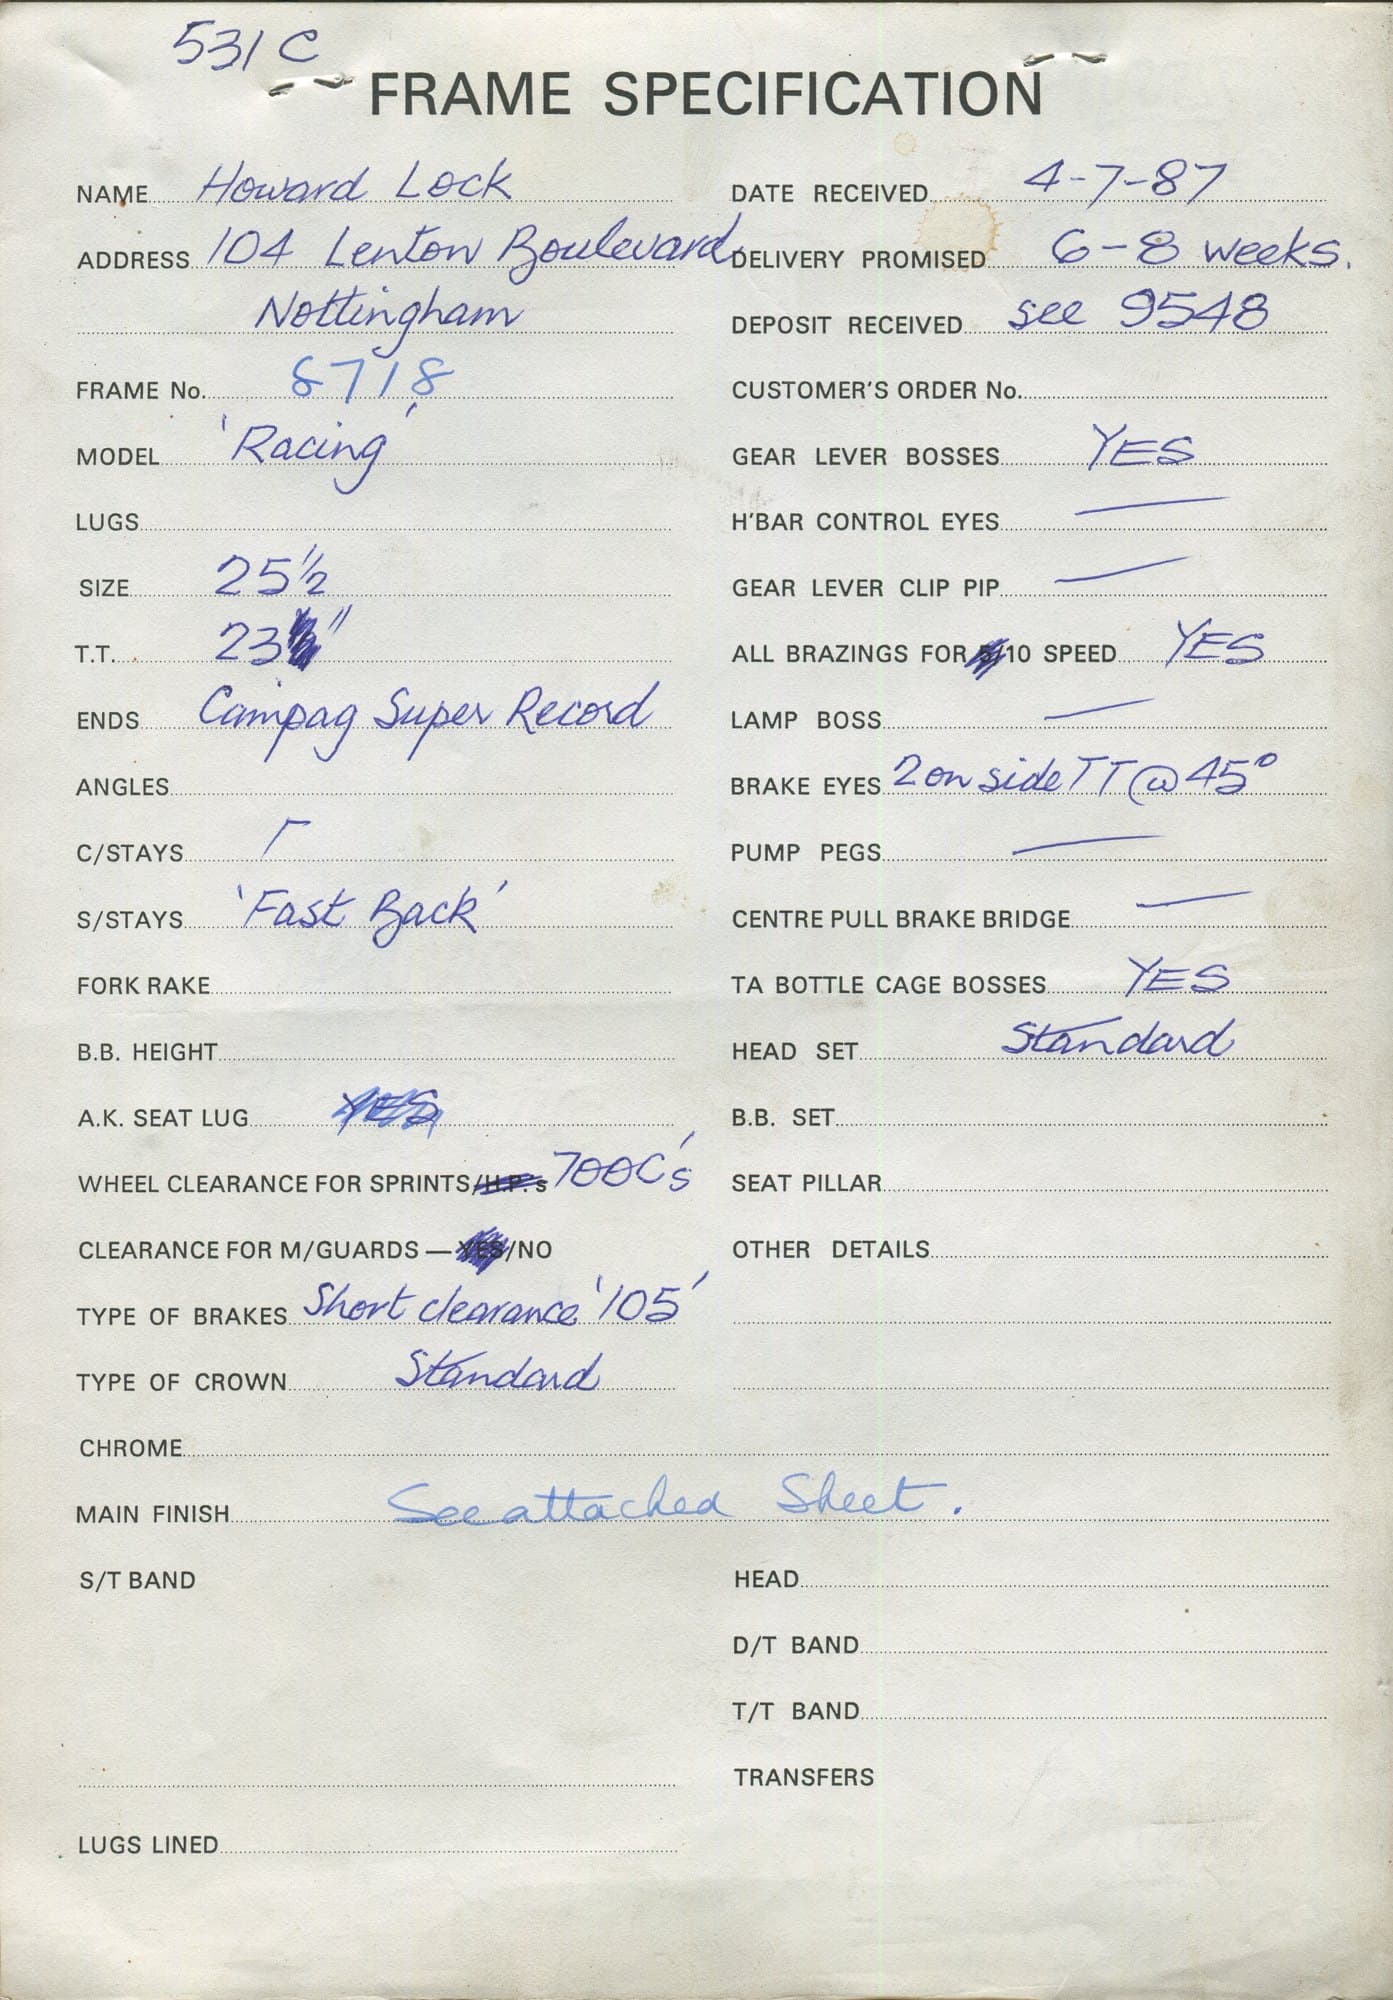 531 C
FRAME SPECIFICATION
NAME Howard Lock
ADDRESS 104 Lenton Boulevard
Nottingham
FRAME No. 8718
MODEL 'Racing'
LUGS
SIZE 25 1/2
T.T. 23"
ENDS Campag Super Record
ANGLES
C/STAYS
S/STAYS 'Fast Back'
FORK RAKE
B.B. HEIGHT
A.K. SEAT LUG YES
WHEEL CLEARANCE FOR SPRINTS/H.P.s 700C's
CLEARANCE FOR M/GUARDS — YES/NO
TYPE OF BRAKES Short clearance '105'
TYPE OF CROWN Standard
DATE RECEIVED 4-7-87
DELIVERY PROMISED 6-8 weeks.
DEPOSIT RECEIVED see 9548
CUSTOMER'S ORDER No.
GEAR LEVER BOSSES YES
H'BAR CONTROL EYES —
GEAR LEVER CLIP PIP —
ALL BRAZINGS FOR 5/10 SPEED YES
LAMP BOSS —
BRAKE EYES 2 on side TT @ 45°
PUMP PEGS —
CENTRE PULL BRAKE BRIDGE —
TA BOTTLE CAGE BOSSES YES
HEAD SET Standard
B.B. SET
SEAT PILLAR
OTHER DETAILS
CHROME
MAIN FINISH See attached Sheet.
S/T BAND
LUGS LINED
HEAD
D/T BAND
T/T BAND
TRANSFERS